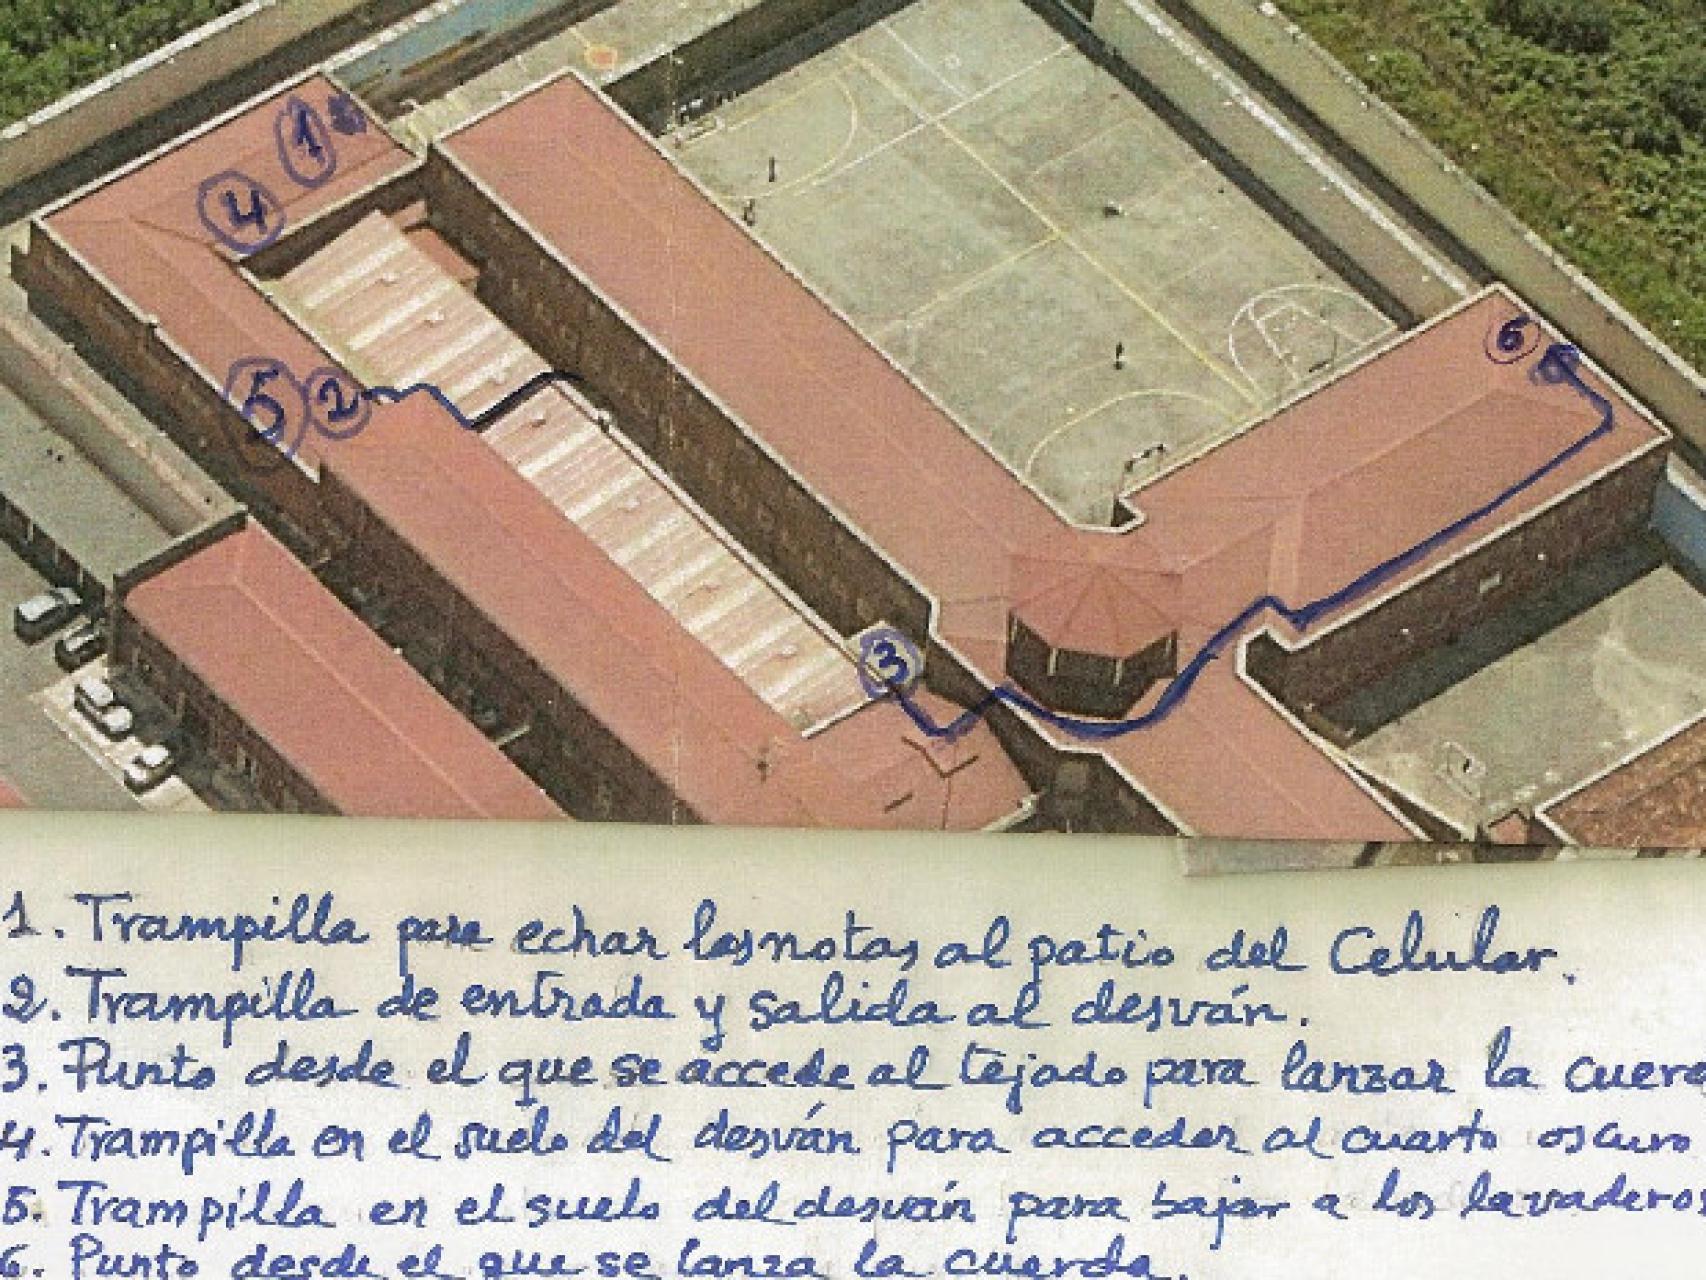 1
4
5 2
6
3
1. Trampilla para echar las notas al patio del Celular.
2. Trampilla de entrada y salida al desván.
3. Punto desde el que se accede al tejado para lanzar la cuerd
4. Trampilla en el suelo del desván para acceder al cuarto oscuro
5. Trampilla en el suelo del desván para bajar a los lavaderos
6. Punto desde el que se lanza la cuerda.